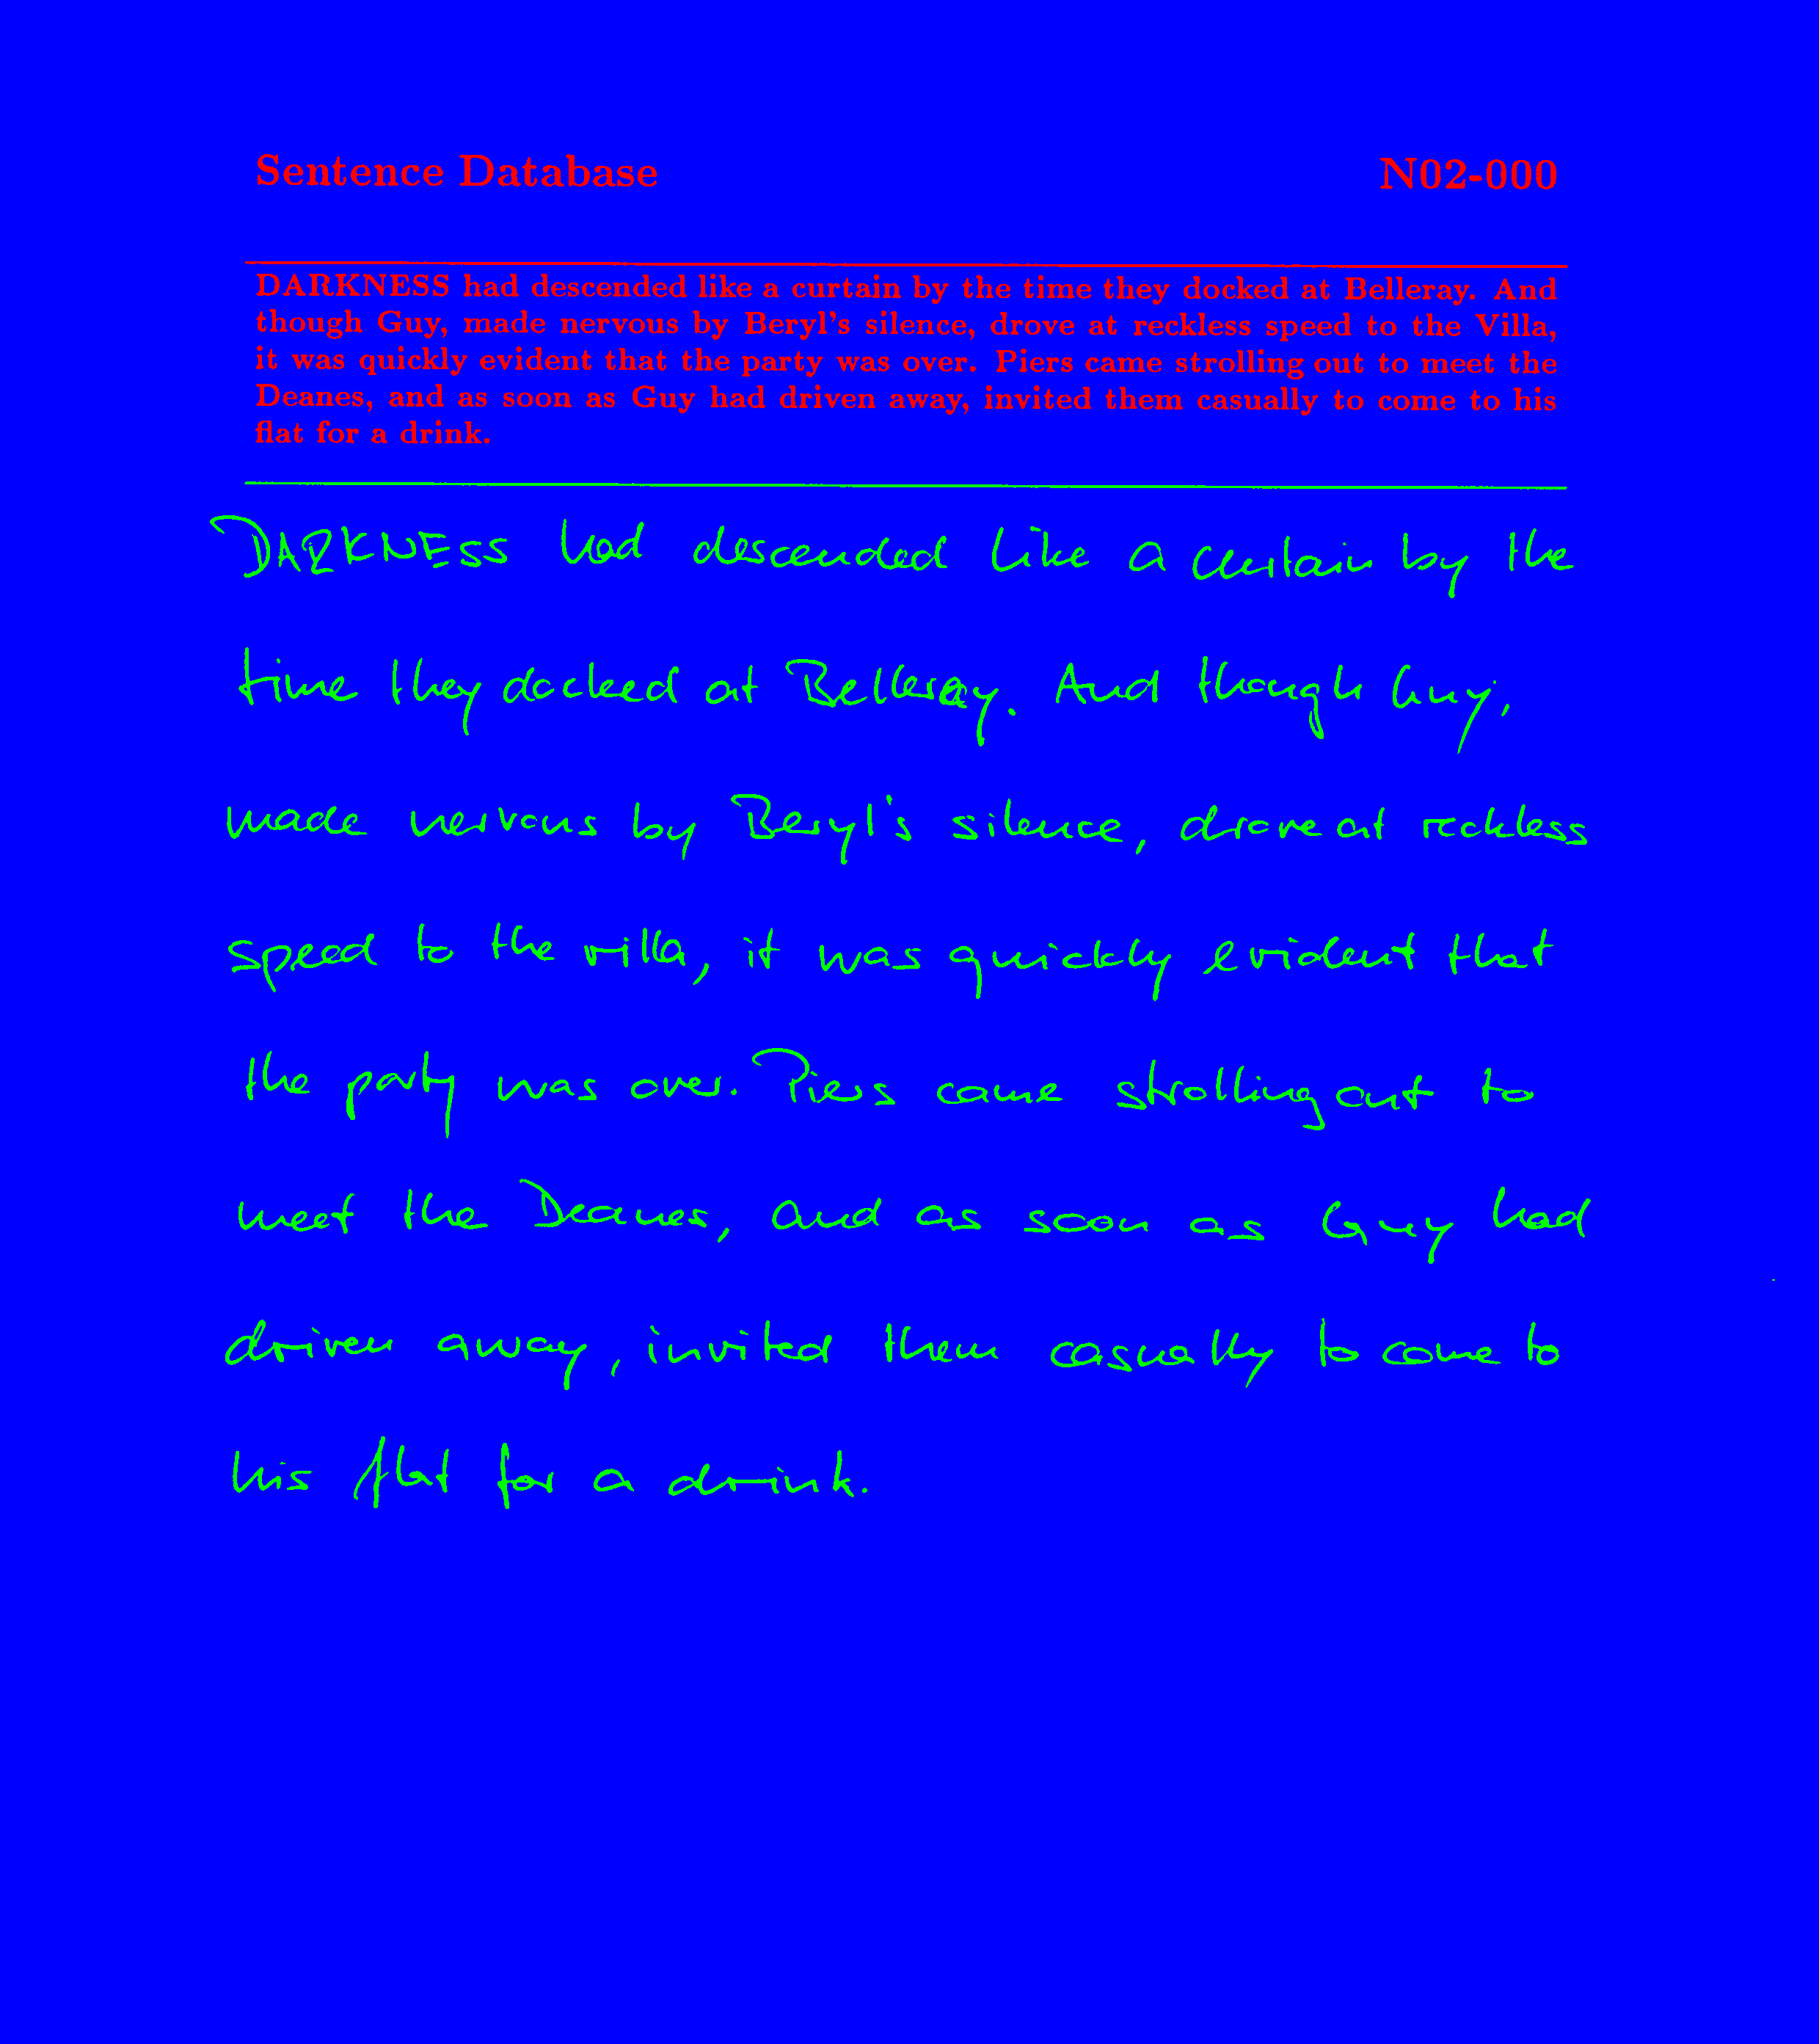 Sentence Database N02-000
DARKNESS had descended like a curtain by the time they docked at Belleray. And
though Guy, made nervous by Beryl's silence, drove at reckless speed to the Villa,
it was quickly evident that the party was over. Piers came strolling out to meet the
Deanes, and as soon as Guy had driven away, invited them casually to come to his
flat for a drink.
DARKNESS had descended like a curtain by the
time they docked at Belleray. And though Guy,
made nervous by Beryl's silence, drove at reckless
speed to the villa, it was quickly evident that
the party was over. Piers came strolling out to
meet the Deanes, and as soon as Guy had
driven away, invited them casually to come to
his flat for a drink.